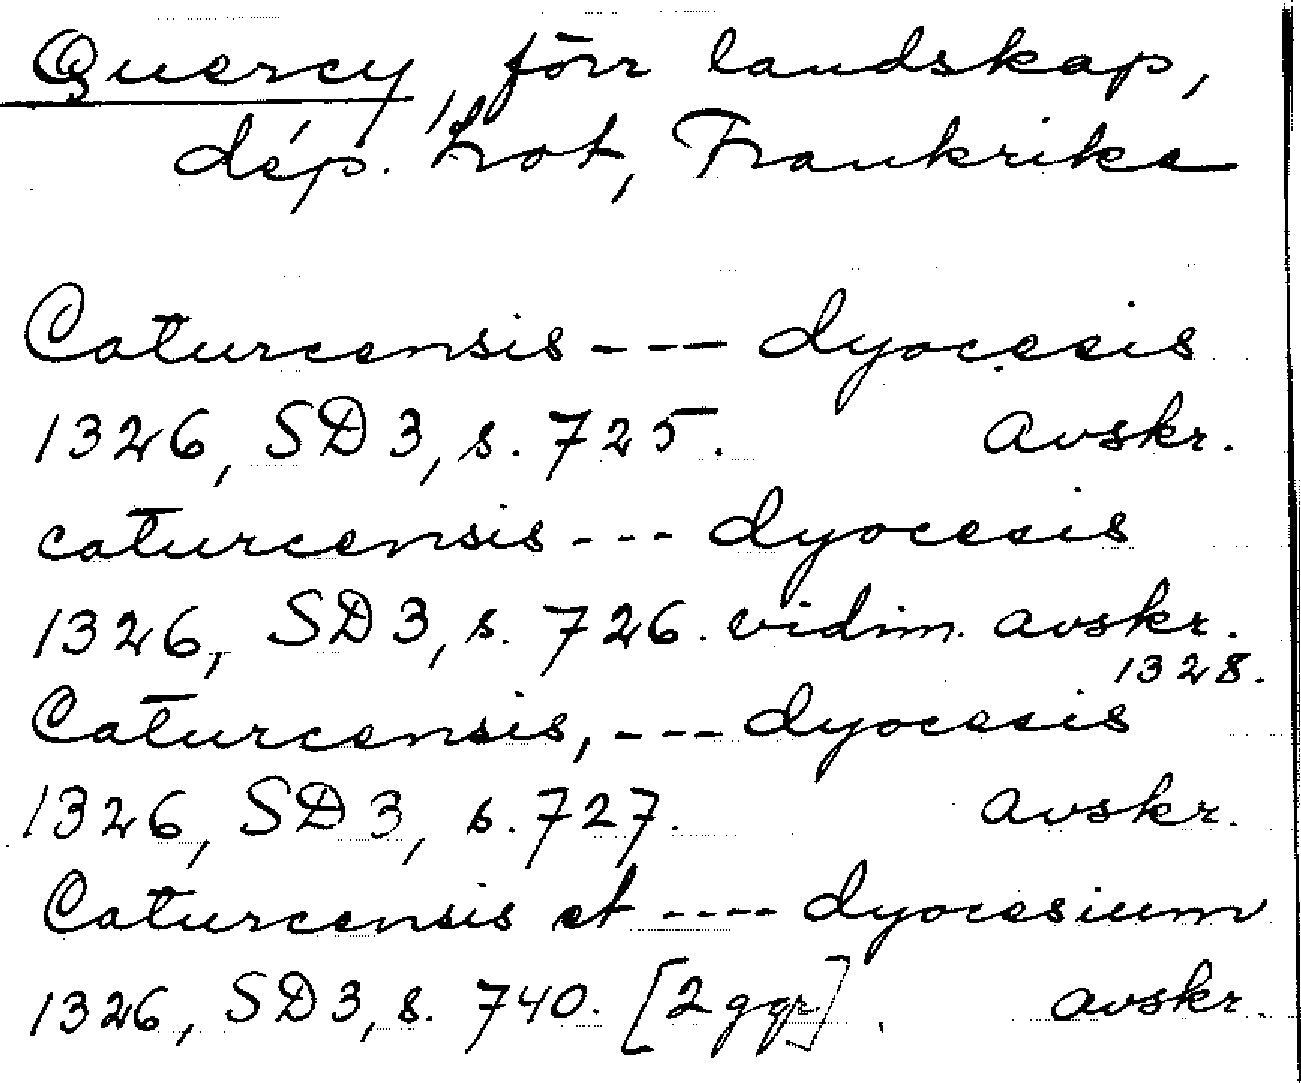 Quercy, förr landskap,
dép. Lot, Frankrike
Caturcensis --- dyocesis
1326, SD 3, s. 725. avskr.
caturcensis --- dyocesis
1326, SD 3, s. 726. vidim. avskr.
1328.
Caturcensis, --- dyocesis
1326, SD 3, s. 727. avskr.
Caturcensis et ---- dyocesium
1326, SD 3, s. 740. [2 ggr]. avskr.